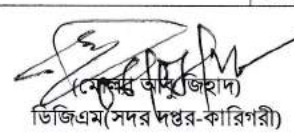 (মোঃ আবু জিহাদ)
ডিজিএম(সদর দপ্তর-কারিগরী)